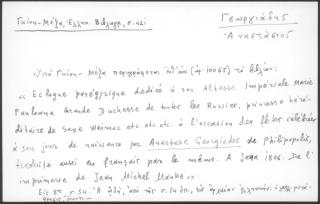 Γκίνη-Μέξα, Ἑλλην. Βιβλιογρ., σ. 42i
Γεωργιάδης
Ἀναστάσιος
Στοῦ Γκίνη-Μέξα περιγράφεται (ἀρ. 10065) τὸ βιβλίον:
« Eclogue panégyrique dédiée à son Altesse Impériale Marie
Paulowna Grande Duchesse de toutes les Russies, princesse héré-
ditaire de Saxe Weimar etc. etc. etc. à l'occasion des fêtes célébrées
à son jour de naissance par Anastase Georgiades de Philippopolis,
traduite aussi en français par le même. A Jena 1806. De l'
imprimerie de Jean Michel Mauke».